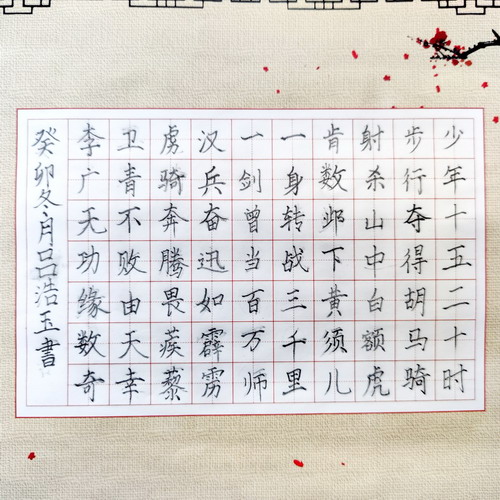 少年十五二十时
步行夺得胡马骑
射杀山中白额虎
肯数邺下黄须儿
一身转战三千里
一剑曾当百万师
汉兵奋迅如霹雳
虏骑奔腾畏蒺藜
卫青不败由天幸
李广无功缘数奇
癸卯冬月吕浩玉書